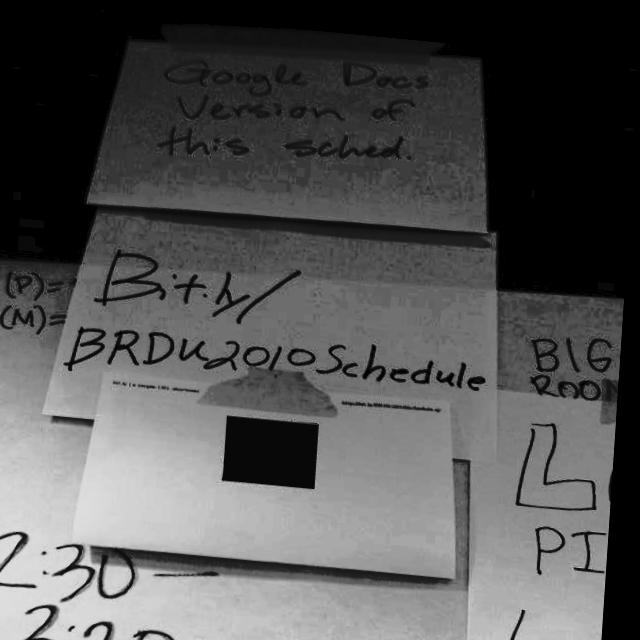 Google Docs
Version of
this sched.
Bit.ly/
BRDU2010Schedule
(P)=
(M)=
BIG
ROO
L
PI
2:30 —
3:30